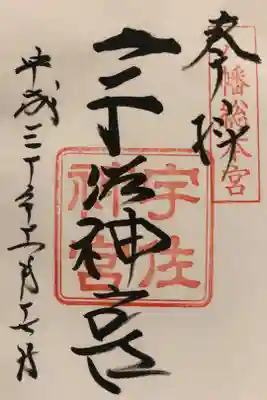 八幡総本宮
奉拝
宇佐神宮
宇佐神宮
平成三十年十一月十七日